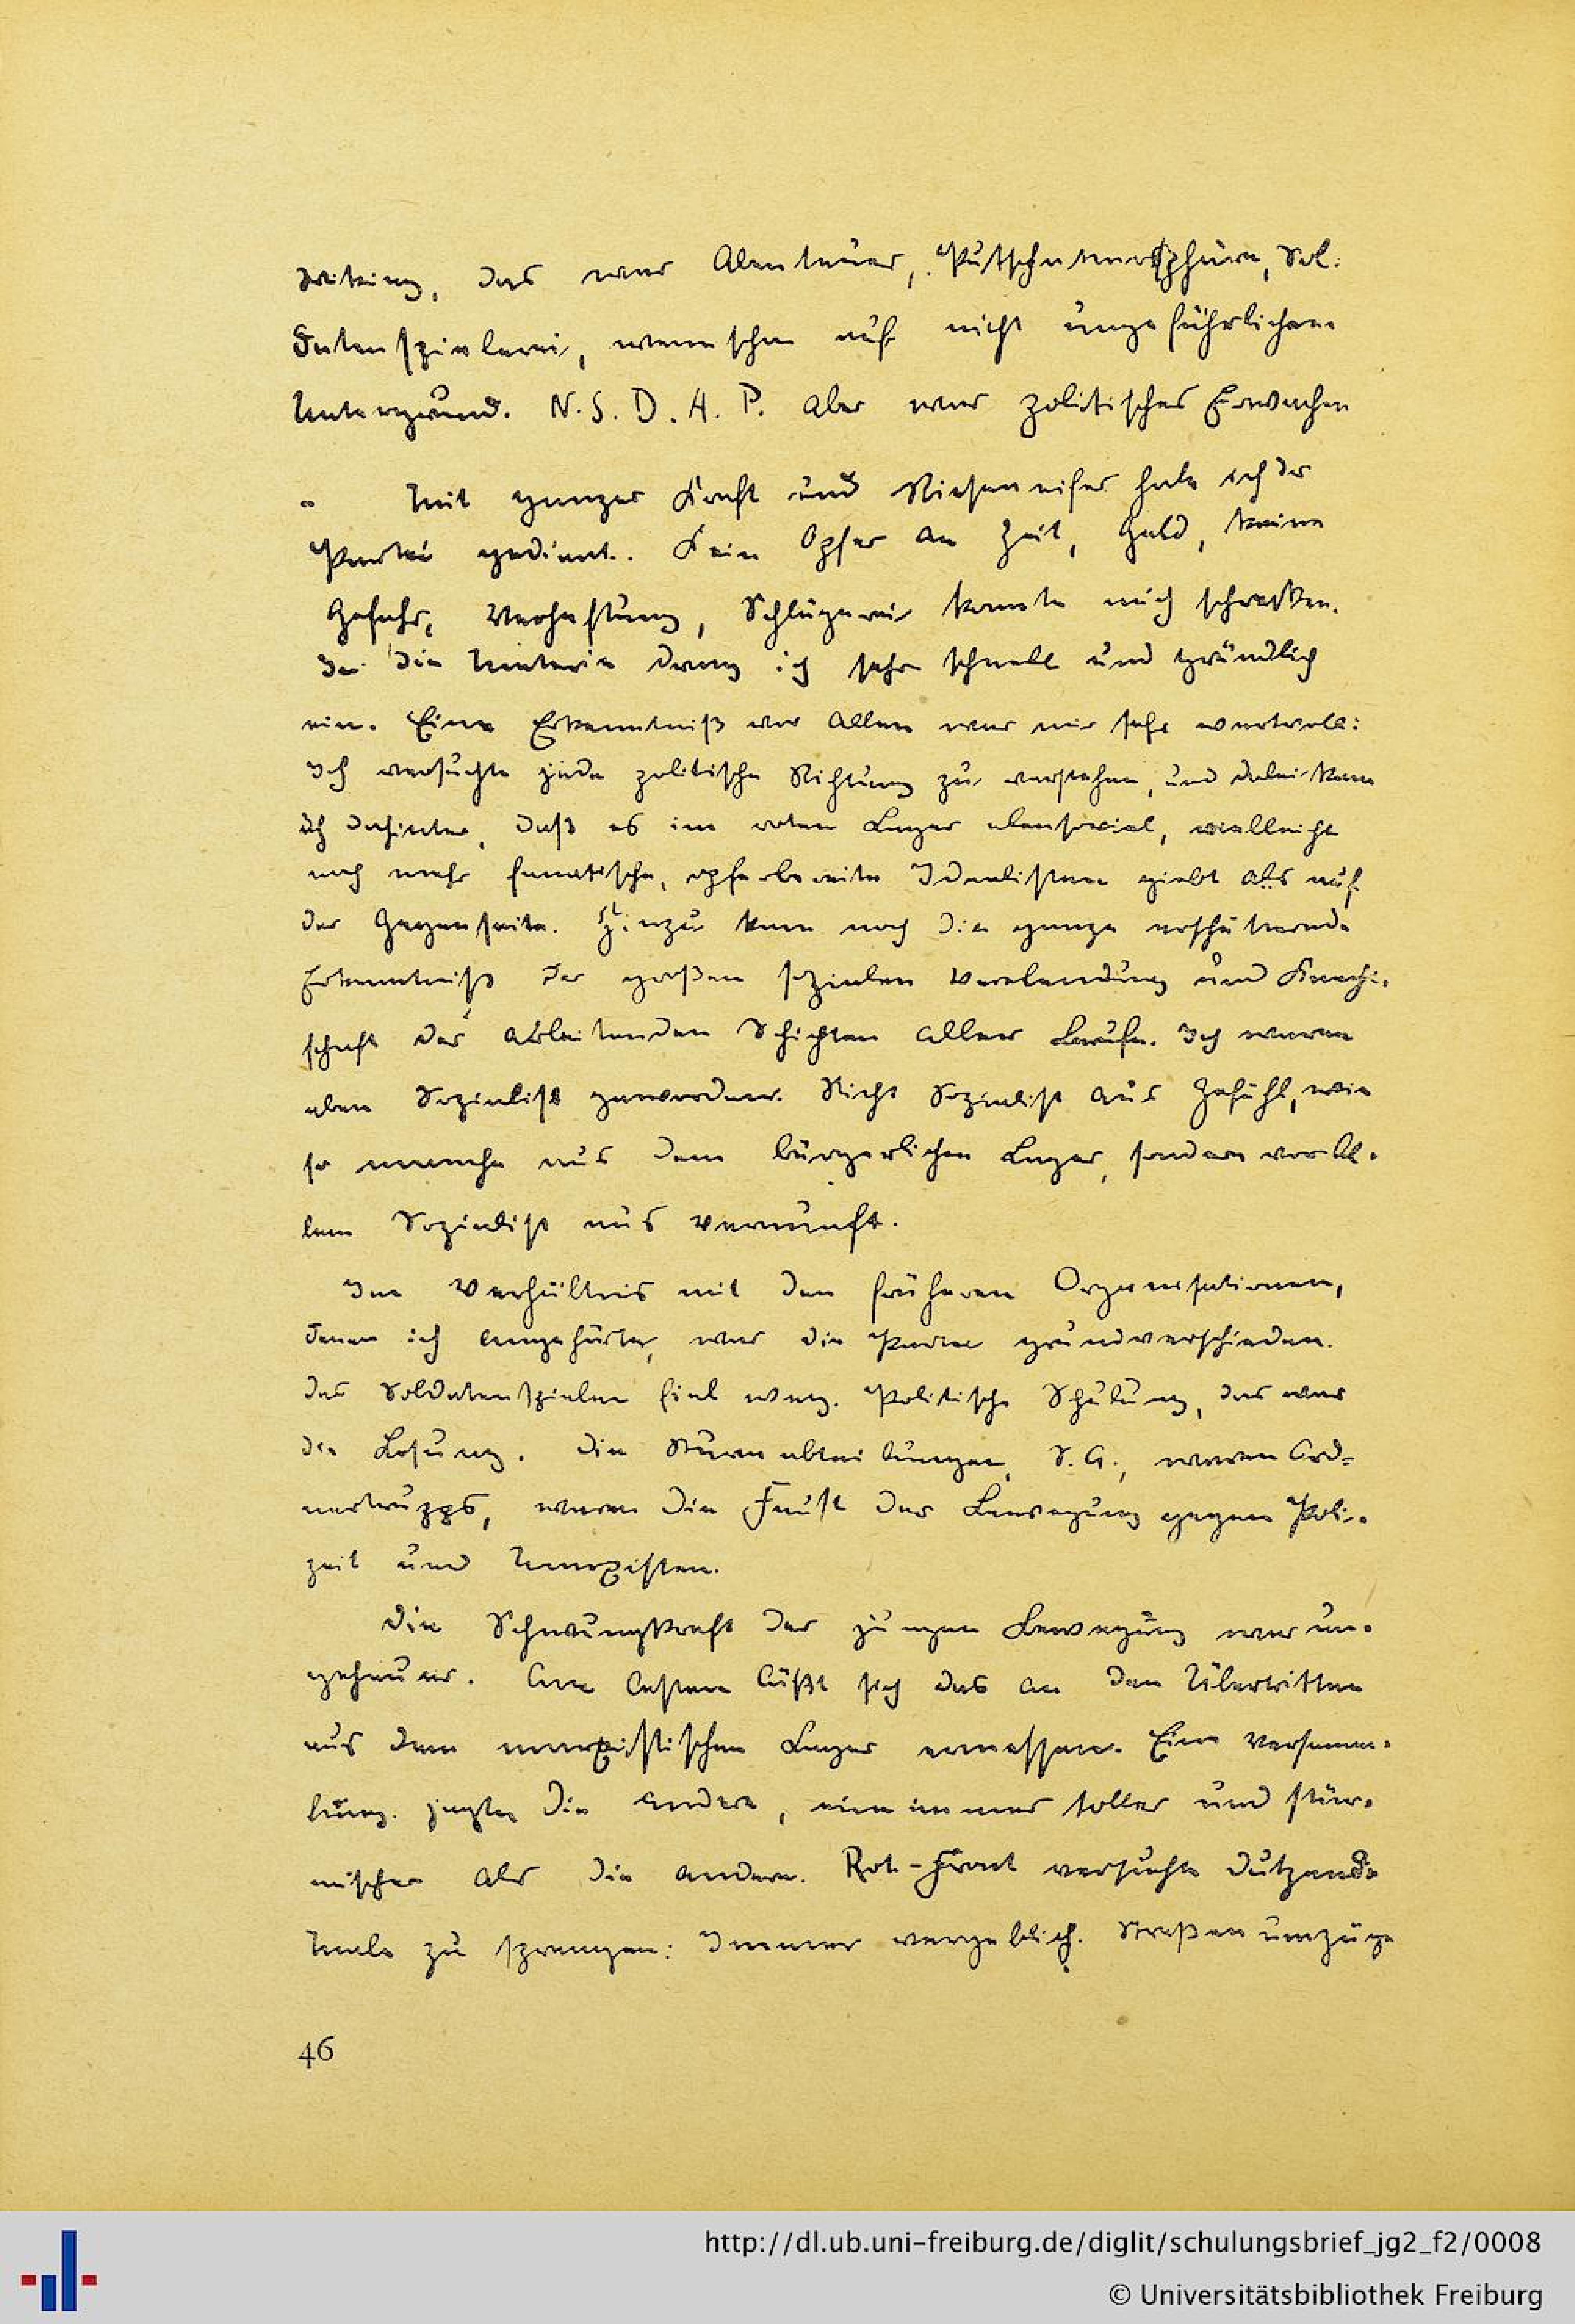 Wiking, das war Abenteuer, Putschatmosphäre, Sol-
datenspielerei, wenn schon auf nicht ungefährlichem
Untergrund. N.S.D.A.P. aber war politisches Erwachen
Mit ganzer Kraft und Rieseneifer habe ich der
Partei gedient. Kein Opfer an Zeit, Geld, keine
Gefahr, Verhaftung, Schlägerei konnte mich schrecken.
In die Materie drang ich sehr schnell und gründlich
ein. Eine Erkenntniß vor Allem war mir sehr wertvoll:
Ich versuchte jede politische Richtung zu verstehen, und dabei kam
ich dahinter, daß es im roten Lager ebensoviel, vielleicht
noch mehr fanatische, opferbereite Idealisten giebt als auf
der Gegenseite. Hinzu kam noch die ganze erschütternde
Erkenntniß der großen sozialen Verelendung und Knecht-
schaft der arbeitenden Schichten aller Berufe. Ich war
eben Sozialist geworden. Nicht Sozialist aus Gefühl, wie
so manche aus dem bürgerlichen Lager, sondern vor Al-
lem Sozialist aus Vernunft.
Im Verhältnis mit den früheren Organisationen,
denen ich angehörte, war die Partei grundverschieden.
Das Soldatenspielen fiel weg. Politische Schulung, das war
die Losung. Die Sturmabteilungen, S.A., waren Ord=
nertrupps, waren die Faust der Bewegung gegen Poli-
zeit und Marxisten.
Die Schwungkraft der jungen Bewegung war un-
geheuer. Am besten läßt sich das an den Übertritten
aus dem marxistischen Lager ermessen. Eine Versamm-
lung jagte die andere, eine immer toller und stür-
mischer als die andere. Rot-Front versuchte dutzende
Male zu sprengen: Immer vergeblich. Straßenumzüge
46
http://dl.ub.uni-freiburg.de/diglit/schulungsbrief_jg2_f2/0008
© Universitätsbibliothek Freiburg